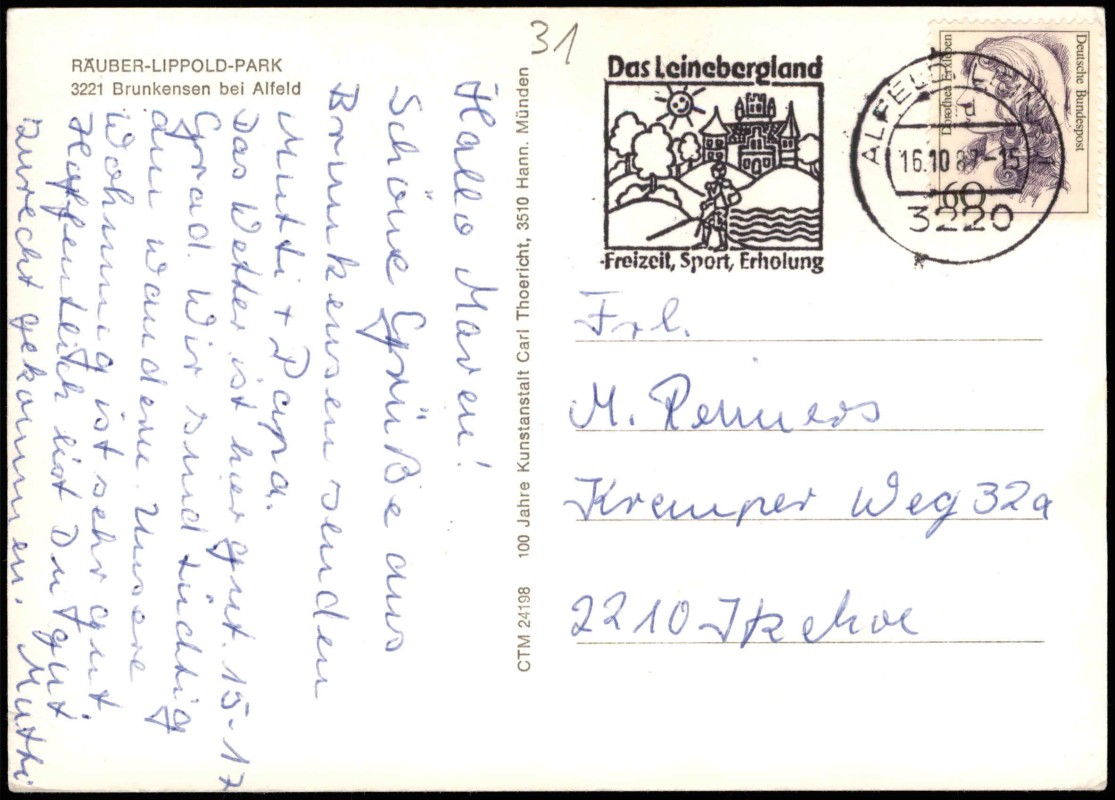 RÄUBER-LIPPOLD-PARK
3221 Brunkensen bei Alfeld
Hallo Maren!
Schöne Grüße aus
Brunkensen senden
Mutti + Papa.
Das Wetter ist hier gut. 15-17
Grad. Wir sind tüchtig
am wandern. Unsere
Wohnung ist sehr gut.
Hoffentlich bist Du gut
zurecht gekommen. Mutti
CTM 24198 100 Jahre Kunstanstalt Carl Thoericht, 3510 Hann. Münden
31
Das Leinebergland
Freizeit, Sport, Erholung
ALFELD
d
16.10 87-15
3220
Deutsche Bundespost
Dorothea Erxleben
60
Frl.
M. Remmers
Kremper Weg 32a
2210 Itzehoe